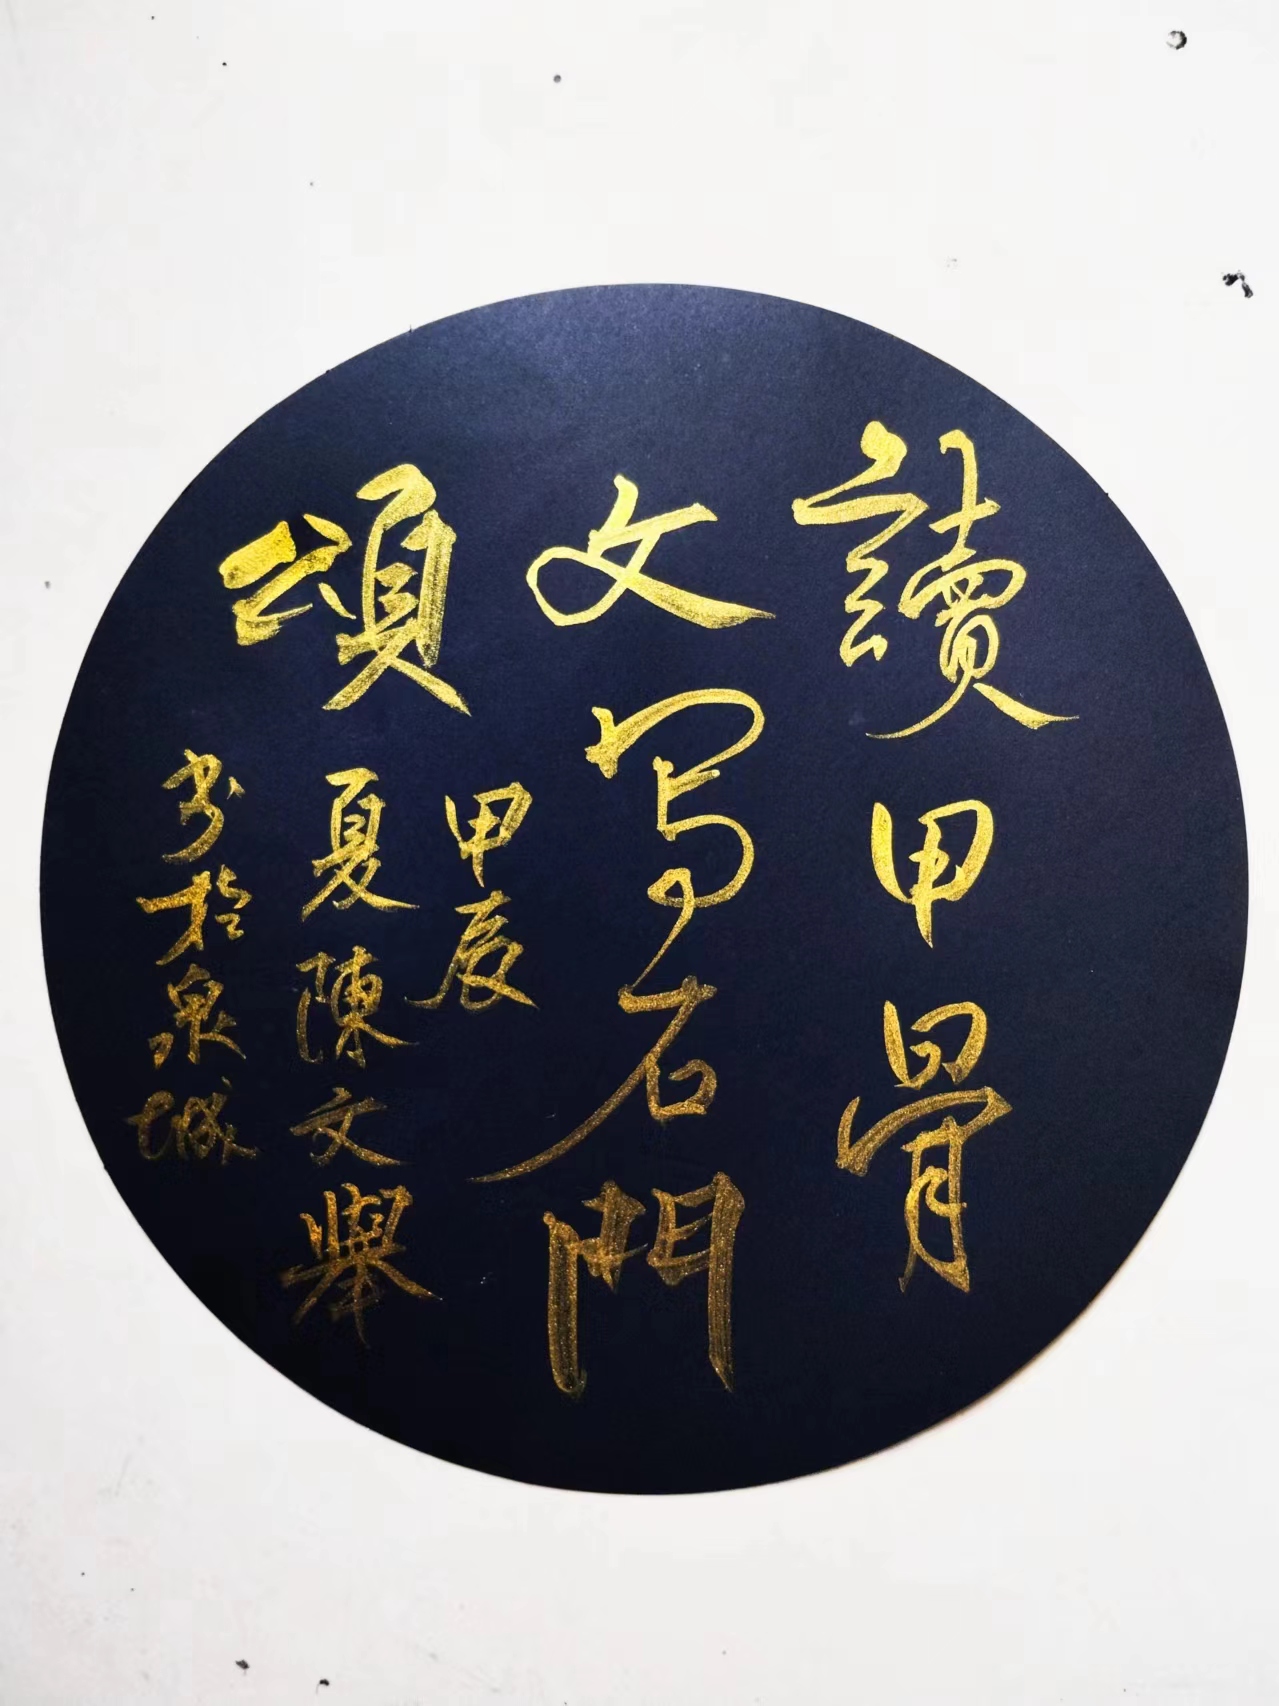 讀甲骨
文写石門
頌
甲辰
夏陳文舉
书於泉城